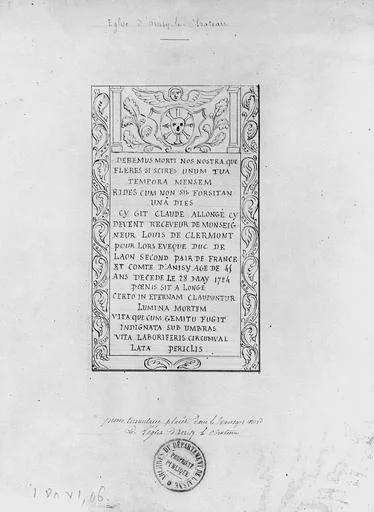 Eglise d'Anisy-le-Chateau
DEBEMUS MORTI NOS NOSTRA QUE
FLERES SI SCIRES UNUM TUA
TEMPORA MENSEM
RIDES CUM NON SIS FORSITAN
UNA DIES
CY GIT CLAUDE ALLONGE CY
DEVENT RECEVEUR DE MONSEIG
NEUR LOUIS DE CLERMONT
POUR LORS EVEQUE DUC DE
LAON SECOND PAIR DE FRANCE
ET COMTE D'ANISY AGE DE 45
ANS DECEDE LE 28 MAY 1724
POENIS SIT A LONGE
CERTO IN ETERNAM CLAUDUNTUR
LUMINA MORTEM
VITA QUE CUM GEMITU FUGIT
INDIGNATA SUB UMBRAS
VITA LABORIFERIS CIRCUMVAL
LATA PERICLIS
pierre tumulaire placée dans le
de l'église d'Anisy le chateau
ARCHIVES DU DÉPARTEMENT DE L'AISNE
PROPRIÉTÉ
PUBLIQUE